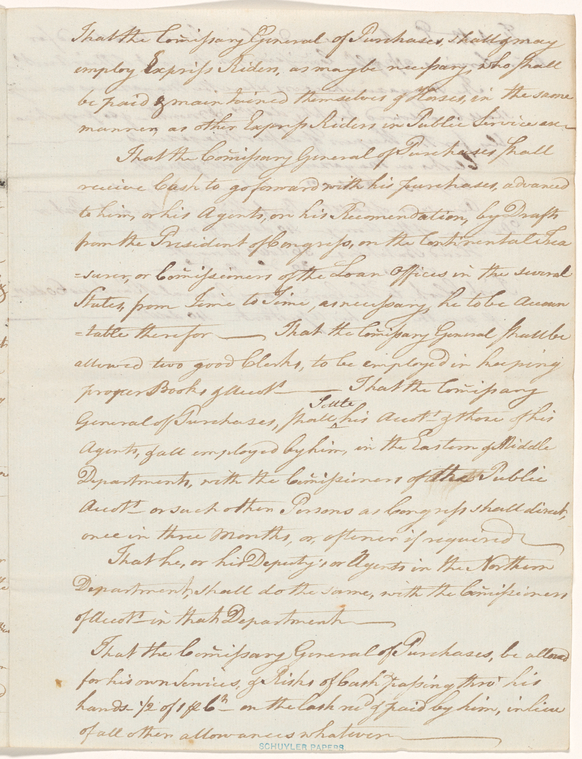 That the Com̃isary General of Purchases, shall & may
employ Express Riders, as may be necessary, who shall
be paid & maintained themselves & Horses, in the same
manner, as other Express Riders in Public Service are —
That the Com̃isary General of Purchases, shall
receive Cash to go forward with his purchases, advanced
to him, or his Agents, on his Recomendation, by Drafts
from the President of Congress, on the Continental Trea
=surer, or Com̃isioners of the Loan Offices in the several
States, from Time to Time, as necessary, he to be Accoun
=table therefor — That the Com̃isary General shall be
allowed two good Clerks, to be employed in keeping
proper Books & Accots — That the Com̃isary
General of Purchases, shall Settle his Accots & those of his
Agents, & all employed by him, in the Eastern & Middle
Departments, with the Com̃isioners of the Public
Accots or such other Persons as Congress shall direct,
once in three Months, or, oftener if required —
That he, or his Deputy's or Agents in the Northern
Department, shall do the same, with the Com̃isioners
of Accots in that Department —
That the Com̃isary General of Purchases, be allowed
for his own Services, & Risks of Cash passing thro' his
hands 1/2 of 1 ⅌ Ct on the Cash recd & paid by him, in lieu
of all other allowances whatever —
SCHUYLER PAPERS